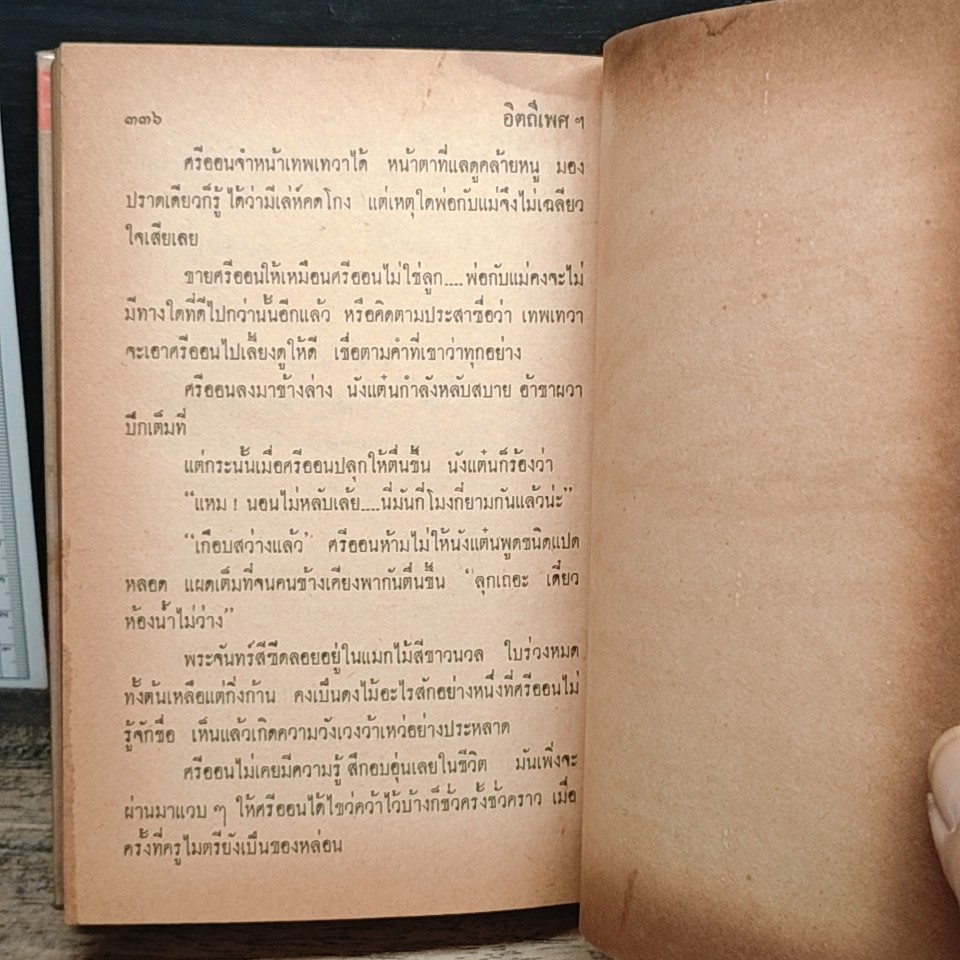 ๓๓๖ อิตถีเพศ ๆ
ศรีออนจำหน้าเทพเทวาได้ หน้าตาที่แลดูคล้ายหนู มอง
ปราดเดียวก็รู้ ได้ว่ามีเล่ห์คดโกง แต่เหตุใดพ่อกับแม่จึงไม่เฉลียว
ใจเสียเลย
ขายศรีออนให้เหมือนศรีออนไม่ใช่ลูก....พ่อกับแม่คงจะไม่
มีทางใดที่ดีไปกว่านั้นอีกแล้ว หรือคิดตามประสาซื่อว่า เทพเทวา
จะเอาศรีออนไปเลี้ยงดูให้ดี เชื่อตามคำที่เขาว่าทุกอย่าง
ศรีออนลงมาข้างล่าง นังแต๋นกำลังหลับสบาย อ้าขาผวา
ปีกเต็มที่
แต่กระนั้นเมื่อศรีออนปลุกให้ตื่นขึ้น นังแต๋นก็ร้องว่า
“แหม ! นอนไม่หลับเล้ย....นี่มันกี่โมงกี่ยามกันแล้วน่ะ”
“เกือบสว่างแล้ว” ศรีออนห้ามไม่ให้นังแต๋นพูดชนิดแปด
หลอด แผดเต็มที่จนคนข้างเคียงพากันตื่นขึ้น “ลุกเถอะ เดี๋ยว
ห้องน้ำไม่ว่าง”
พระจันทร์สีซีดลอยอยู่ในแมกไม้สีขาวนวล ใบร่วงหมด
ทั้งต้นเหลือแต่กิ่งก้าน คงเป็นดงไม้อะไรสักอย่างหนึ่งที่ศรีออนไม่
รู้จักชื่อ เห็นแล้วเกิดความวังเวงว้าเหว่อย่างประหลาด
ศรีออนไม่เคยมีความรู้ สึกอบอุ่นเลยในชีวิต มันเพิ่งจะ
ผ่านมาแวบ ๆ ให้ศรีออนได้ไขว่คว้าไว้บ้างก็ชั่วครั้งชั่วคราว เมื่อ
ครั้งที่ครูไมตรียังเป็นของหล่อน